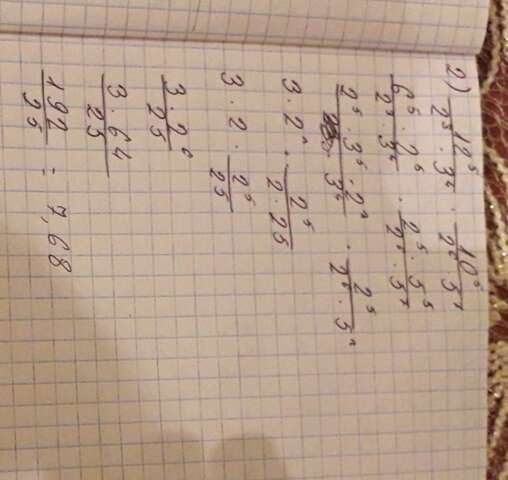 2) 12^5 / 2^5 · 3^4 · 10^5 / 2^6 · 5^7
6^5 · 2^5 / 2^5 · 3^4 · 2^5 · 5^5 / 2^6 · 5^7
2^5 · 3^5 · 2^5 / 3^4 · 2^5 / 2^6 · 5^2
3 · 2^5 · 2^5 / 2 · 25
3 · 2 · 2^5 / 25
3 · 2^6 / 25
3 · 64 / 25
192 / 25 = 7,68